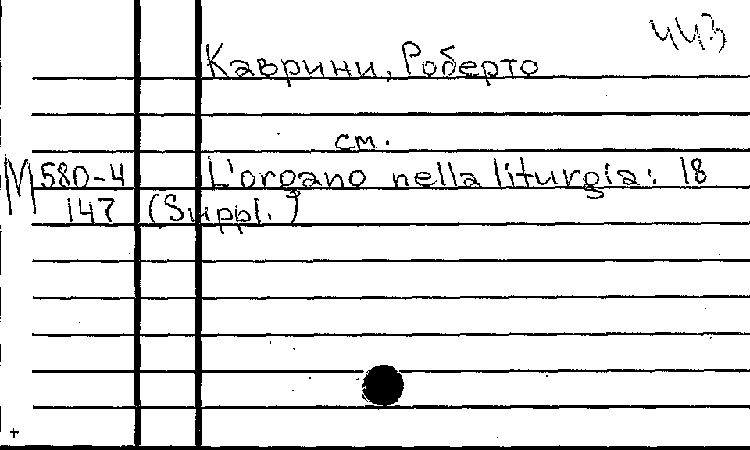 443
Каврини, Роберто
см.
М 580-4 L'organo nella liturgia: 18
147 (Suppl.)